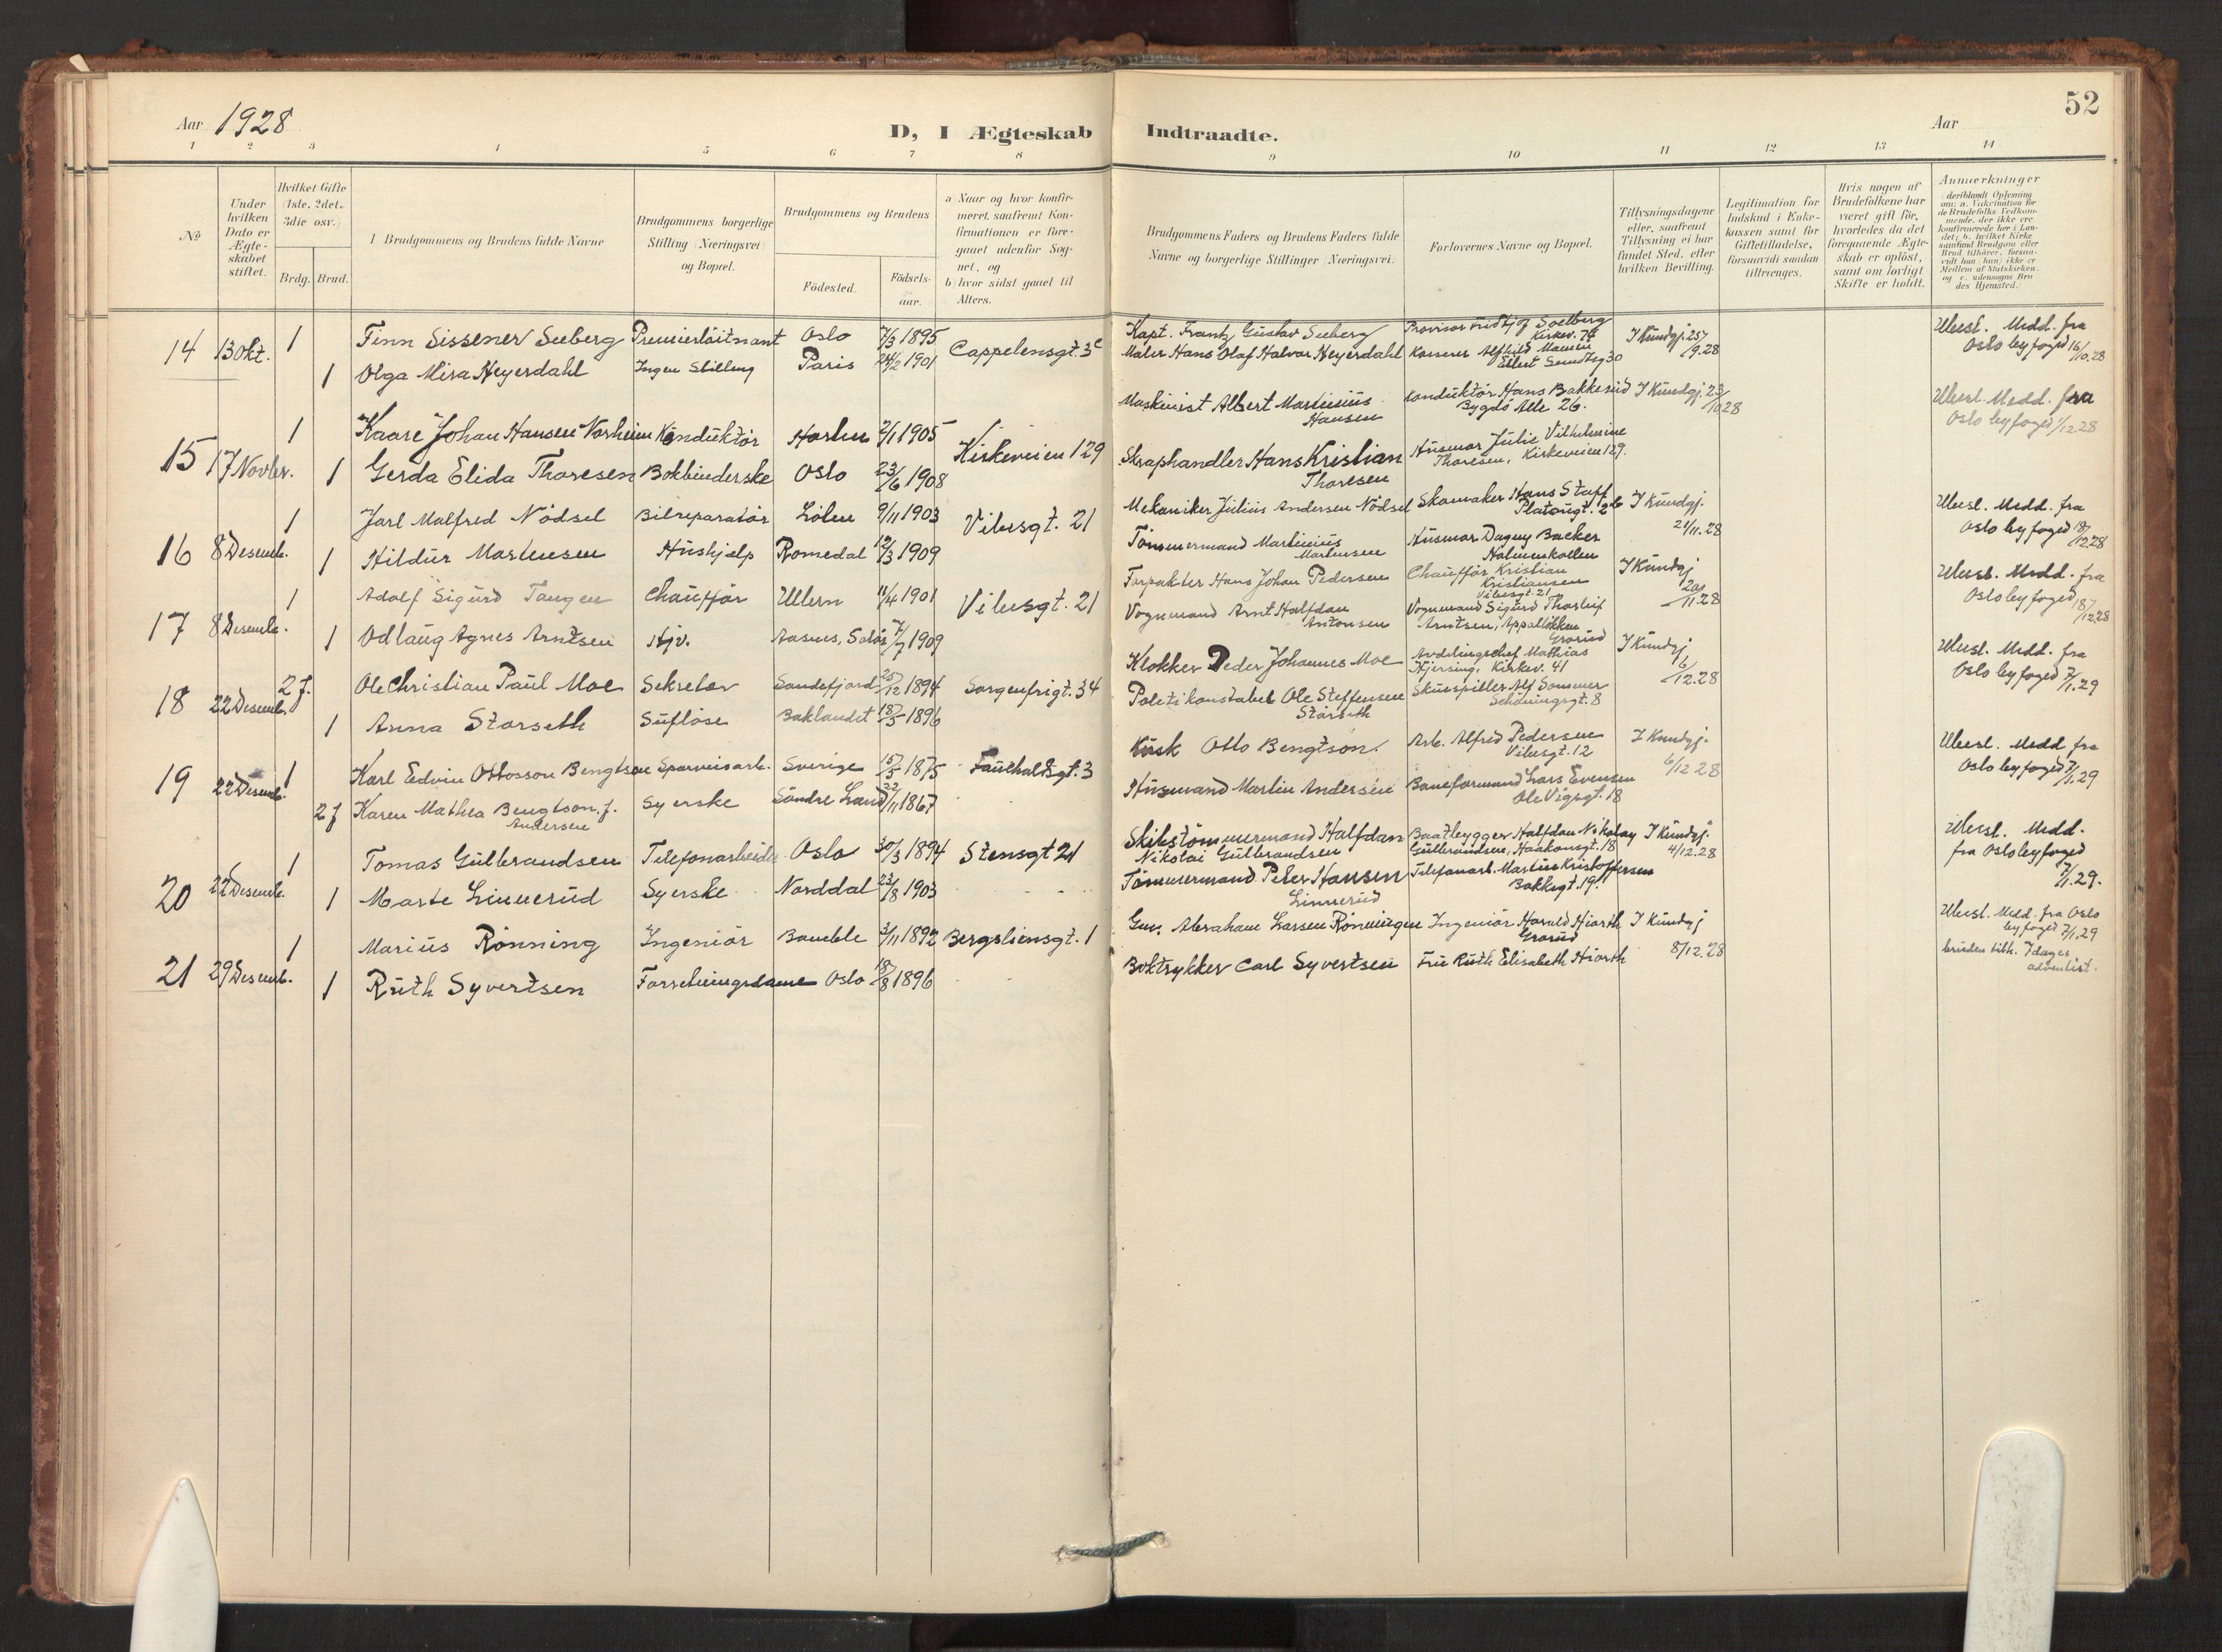 52
Aar 1928
D, I Ægteskab Indtraadte.
Aar
1 2 3 4 5 6 7 8 9 10 11 12 13 14
№
Under hvilken Dato er Ægteskabet stiftet.
Hvilket Gifte (1ste, 2det, 3die osv.)
Brdg. Brud.
I Brudgommens og Brudens fulde Navne
Brudgommens borgerlige Stilling (Næringsvei) og Bopæl.
Brudgommens og Brudens
Födested.
Födsels-aar.
a) Naar og hvor konfir-
meret, saafremt Kon-
firmationen er fore-
gaaet udenfor Sog-
net, og
b) hvor sidst gaaet til
Alters.
Brudgommens Faders og Brudens Faders fulde
Navne og borgerlige Stillinger (Næringsvei).
Forlovernes Navne og Bopæl.
Tillysningsdagene
eller, saafremt
Tillysning ei har
fundet Sted, efter
hvilken Bevilling.
Legitimation for
Indskud i Enke-
kassen samt for
Giftetilladelse,
forsaavidt saadan
tiltrænges.
Hvis nogen af
Brudefolkene har
været gift för,
hvorledes da det
foregaaende Ægte-
skab er oplöst,
samt om lovligt
Skifte er holdt.
Anmærkninger
(deriblandt Oplysning
om: a. Vakcination for
de Brudefolks Vedkom-
mende, der ikke ere
konfirmerede her i Lan-
det; b. hvilket Kirke-
samfund Brudgom eller
Brud tilhører, forsaa-
vidt han (hun) ikke er
Medlem af Statskirken,
og c. udensogns Bru-
des Hjemsted.)
14 13 Okt. 1 Finn Sissener Seeberg Premierlöitnant Oslo 7/3 1895 Cappelensgt. 3c Kapt. Frantz Gustav Seeberg Provisor Fridtjof Soelberg Kirkev. 74 I Kundgj. 25/9.28 Utest. Medd. fra Oslo byfoged 16/10.28
1 Olga Mira Heyerdahl Ingen Stilling Paris 24/2 1901 Maler Hans Olaf Halvor Heyerdahl Eilert Sundtsg 30
15 17 Novbr. 1 Kaare Johan Hansen Norheim Konduktör Horten 2/11 1905 Kirkeveien 129 Maskinist Albert Martinius Hansen Konduktör Hans Bakkerud Bygdö Alle 26. I Kundgj. 23/10 28 Utest. Medd. fra Oslo byfoged 1/12 28
1 Gerda Elida Thoresen Bokbinderske Oslo 23/6 1908 Skraphandler Hans Kristian Thoresen Husmor Julie Vilhelmine Thoresen, Kirkeveien 129.
16 8 Desemb. 1 Jarl Malfred Nödsel Bilreparatör Löten 9/11 1903 Vibesgt. 21 Mekaniker Julius Andersen Nödsel Skomaker Hans Staff Platougt. 26 I Kundgj. 21/11.28 Utest. Medd. fra Oslo byfoged 18/12 28
1 Hildur Martinsen Hushjelp Romedal 12/3 1909 Tömmermand Martinius Martinsen Husmor Dagny Backer Holmenkollen
17 8 Desemb. 1 Adolf Sigurd Tangen Chaufför Ullern 11/4 1901 Vibesgt. 21 Forpakter Hans Johan Pedersen Chaufför Kristian Kristiansen Vibesgt. 21 I Kundgj 20/11.28 Utest. Medd. fra Oslo byfoged 18/12 28
1 Odlaug Agnes Arntsen Hjv. Aasnes, Solör 7/7 1909 Vognmand Arnt Halfdan Antonsen Vognmand Sigurd Thorleif Arntsen, Appallökken Grorud
18 22 Desemb. 2 f. Ole Christian Paul Moe Sekretær Sandefjord 25/12 1894 Sorgenfrigt. 34 Klokker Peder Johannes Moe Avdelingschef Mathias Hjersing, Kirkev. 41 I Kundgj 6/12.28 Utest. Medd. fra Oslo byfoged 7/1.29
1 Anna Storseth Suflöse Baklandet 18/5 1896 Politikonstabel Ole Steffensen Storseth Skuespiller Alf Sommer Schöningsgt. 8
19 22 Desemb. 1 Karl Edvin Ottosson Bengtson Sporveisarb. Sverige 15/5 1875 Fauchaldsgt. 3 Kusk Otto Bengtson. Arb. Alfred Pedersen Vibesgt. 12 I Kundgj. 6/12 28 Utest. Medd fra Oslo byfoged 7/1.29
2 f Karen Mathea Bengtson, f. Andersen Syerske Söndre Land 22/11 1867 Husmand Martin Andersen Baneformand Lars Evensen Ole Vigsgt. 18
20 22 Desemb. 1 Tomas Gulbrandsen Telefonarbeider Oslo 30/3 1894 Stensgt 21 Skibstömmermand Halfdan Nikolai Gulbrandsen Baatbygger Halfdan Nikolay Gulbrandsen, Haakonsgt. 18 I Kundgj. 4/12.28 Utest. Medd. fra Oslo byfoged 7/1.29.
1 Marte Linnerud Syerske Norddal 23/8 1903 Tömmermand Peter Hansen Linnerud Telefonarb. Martius Kristoffersen Bakkegt. 19.
21 29 Desemb. 1 Marius Rönning Ingeniör Bamble 3/11 1892 Bergsliensgt. 1 Abraham Larsen Rönningen Ingeniör Harald Hiorth Grorud I Kundgj 8/12.28 Utest. Medd. fra Oslo byfoged 7/1.29 bruden tilh. 7dages adventist.
1 Ruth Syvertsen Forretningsdame Oslo 18/8 1896 Boktrykker Carl Syvertsen Frue Ruth Elisabeth Hiorth